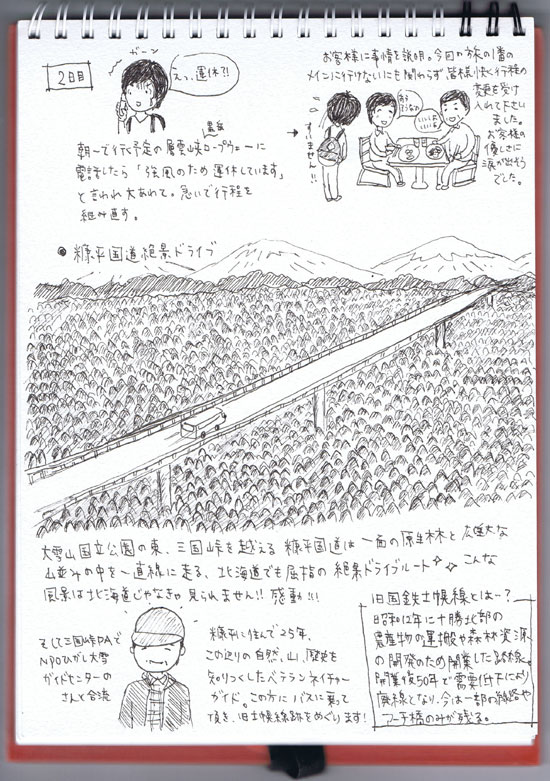 2日目
ガーン
えっ、運休?!
黒岳
朝一で行く予定の層雲峡ロープウェーに
電話したら「強風のため運休しています」
と言われ大あわて。急いで行程を
組み直す。
お客様に事情を説明。今回の旅の1番の
メインに行けないにも関わらず皆様快く行程の
変更を受け
入れて下さい
ました。
お客様の
優しさに
涙が出そう
でした。
すいません!!
いいよ
いいよ
糠平国道絶景ドライブ
大雪山国立公園の東、三国峠を越える糠平国道は一面の原生林と広大な
山並みの中を一直線に走る、北海道でも屈指の絶景ドライブルート こんな
風景は北海道じゃなきゃ見られません!!感動!!!
そして三国峠PAで
NPOひがし大雪
ガイドセンターの
さんと合流
糠平に住んで25年、
この辺りの自然、山、歴史を
知りつくしたベテランネイチャー
ガイド。この方にバスに乗って
頂き、旧士幌線跡をめぐります!
旧国鉄士幌線とは…?
昭和12年に十勝北部の
農産物の運搬や森林資源
の開発のため開業した路線。
開業後50年で需要低下により
廃線となり、今は一部の線路や
アーチ橋のみが残る。